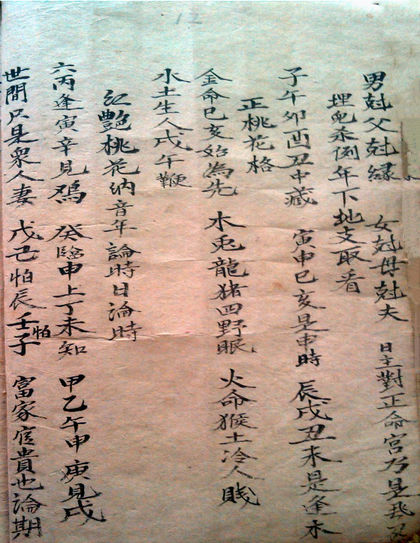 12
男尅父尅緣 女尅母尅夫 日主對正命宮乃是
埋兒杀例年下地支取看
子午卯酉丑中藏 寅申巳亥是申時 辰戌丑未是逢木
正桃花格
金命巳亥始為先 木兎龍猪四野眠 火命猴土冷人賤
水土生人戌午鞭
紅艷桃花納音年論時日論時
六丙逢寅辛見鷄 癸臨申上丁未知 甲乙午申庚見戌
世間只是眾人妻 戊己怕辰壬怕子 富家官貴也論期